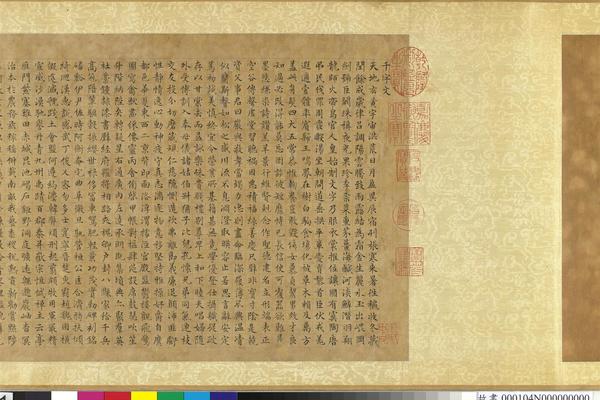 千字文
天地玄黃宇宙洪荒日月盈昃辰宿列張寒來暑往秋收冬藏
閏餘成歲律呂調陽雲騰致雨露結為霜金生麗水玉出崑岡
劍號巨闕珠稱夜光果珍李柰菜重芥薑海鹹河淡鱗潛羽翔
龍師火帝鳥官人皇始制文字乃服衣裳推位讓國有虞陶唐
弔民伐罪周發殷湯坐朝問道垂拱平章愛育黎首臣伏戎羌
遐邇壹體率賓歸王鳴鳳在樹白駒食場化被草木賴及萬方
蓋此身髮四大五常恭惟鞠養豈敢毀傷女慕貞絜男效才良
知過必改得能莫忘罔談彼短靡恃己長信使可覆器欲難量
墨悲絲染詩讚羔羊景行維賢剋念作聖德建名立形端表正
空谷傳聲虛堂習聽禍因惡積福緣善慶尺璧非寶寸陰是競
資父事君曰嚴與敬孝當竭力忠則盡命臨深履薄夙興溫凊
似蘭斯馨如松之盛川流不息淵澄取映容止若思言辭安定
篤初誠美慎終宜令榮業所基籍甚無竟學優登仕攝職從政
存以甘棠去而益詠樂殊貴賤禮別尊卑上和下睦夫唱婦隨
外受傅訓入奉母儀諸姑伯叔猶子比兒孔懷兄弟同氣連枝
交友投分切磨箴規仁慈隱惻造次弗離節義廉退顛沛匪虧
性靜情逸心動神疲守真志滿逐物意移堅持雅操好爵自縻
都邑華夏東西二京背邙面洛浮渭據涇宮殿盤鬱樓觀飛驚
圖寫禽獸畫彩仙靈丙舍傍啟甲帳對楹肆筵設席鼓瑟吹笙
升階納陛弁轉疑星右通廣內左達承明既集墳典亦聚群英
杜稿鍾隸漆書壁經府羅將相路俠槐卿戶封八縣家給千兵
高冠陪輦驅轂振纓世祿侈富車駕肥輕策功茂實勒碑刻銘
磻溪伊尹佐時阿衡奄宅曲阜微旦孰營桓公匡合濟弱扶傾
綺迴漢惠說感武丁俊乂密勿多士寔寧晉楚更霸趙魏困橫
假途滅虢踐土會盟何遵約法韓弊煩刑起翦頗牧用軍最精
宣威沙漠馳譽丹青九州禹跡百郡秦并嶽宗恆岱禪主云亭
雁門紫塞雞田赤城昆池碣石鉅野洞庭曠遠綿邈巖岫杳冥
治本於農務茲稼穡俶載南畝我藝黍稷稅熟貢新勸賞黜陟
故畫 000104N000000000